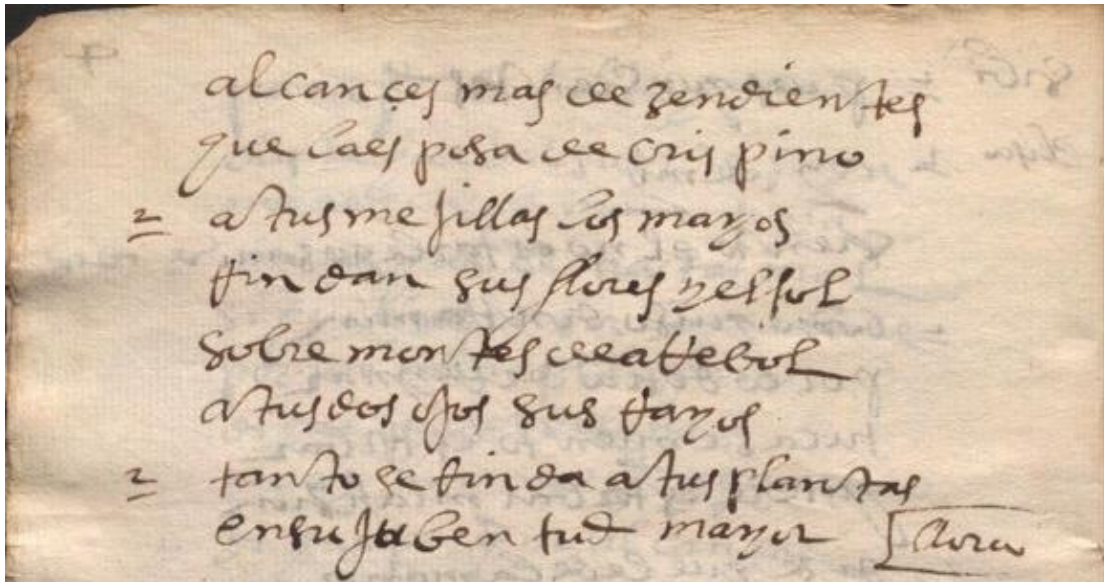 alcançes mas dezendientes
que la esposa de crispino
2 a tus mejillas los mayos
rindan sus flores y el sol
sobre montes de arrebol
a tus dos ojos sus rayos
2 tanto se rinda a tus plantas
en su jubentud mayor